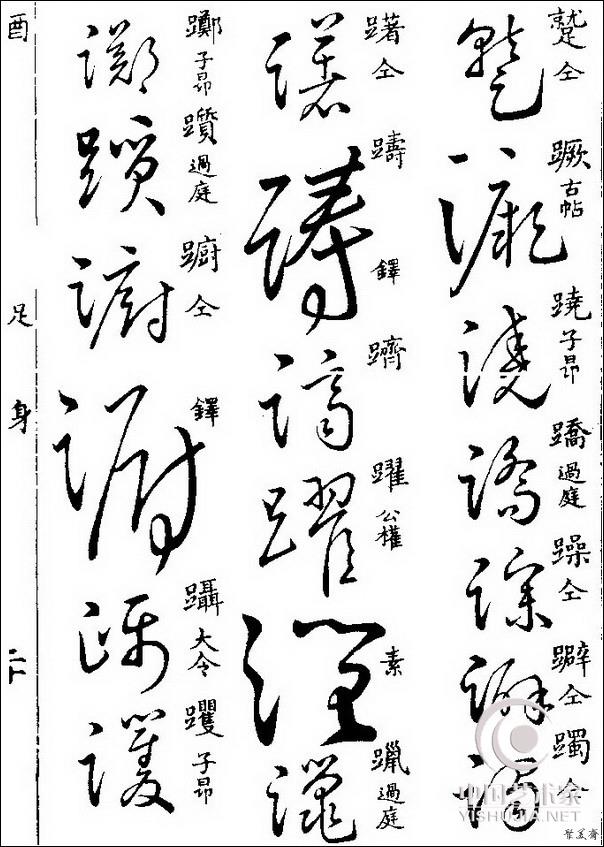 蹵 仝
蹶 古帖
蹺 子昂
蹻 過庭
躁 仝
躃 仝
躅 仝
躇 仝
躊 鐸
躋
躍 公權
素
躐 過庭
躑 子昂
躓 過庭
躕 仝
鐸
躡 大令
躩 子昂
酉 足 身
中国艺术家
YISHUJIA.NET